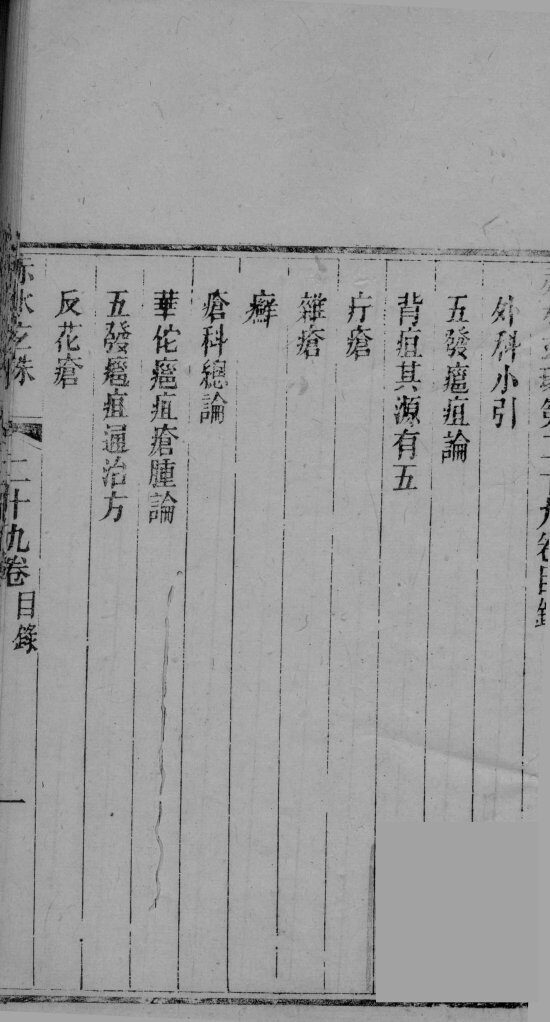 赤水玄珠第二十九卷目錄
外科小引
五發癰疽論
背疽其源有五
疔瘡
雜瘡
癬
瘡科總論
華佗癰疽瘡腫論
五發癰疽通治方
反花瘡
赤水玄珠
二十九卷目錄
一